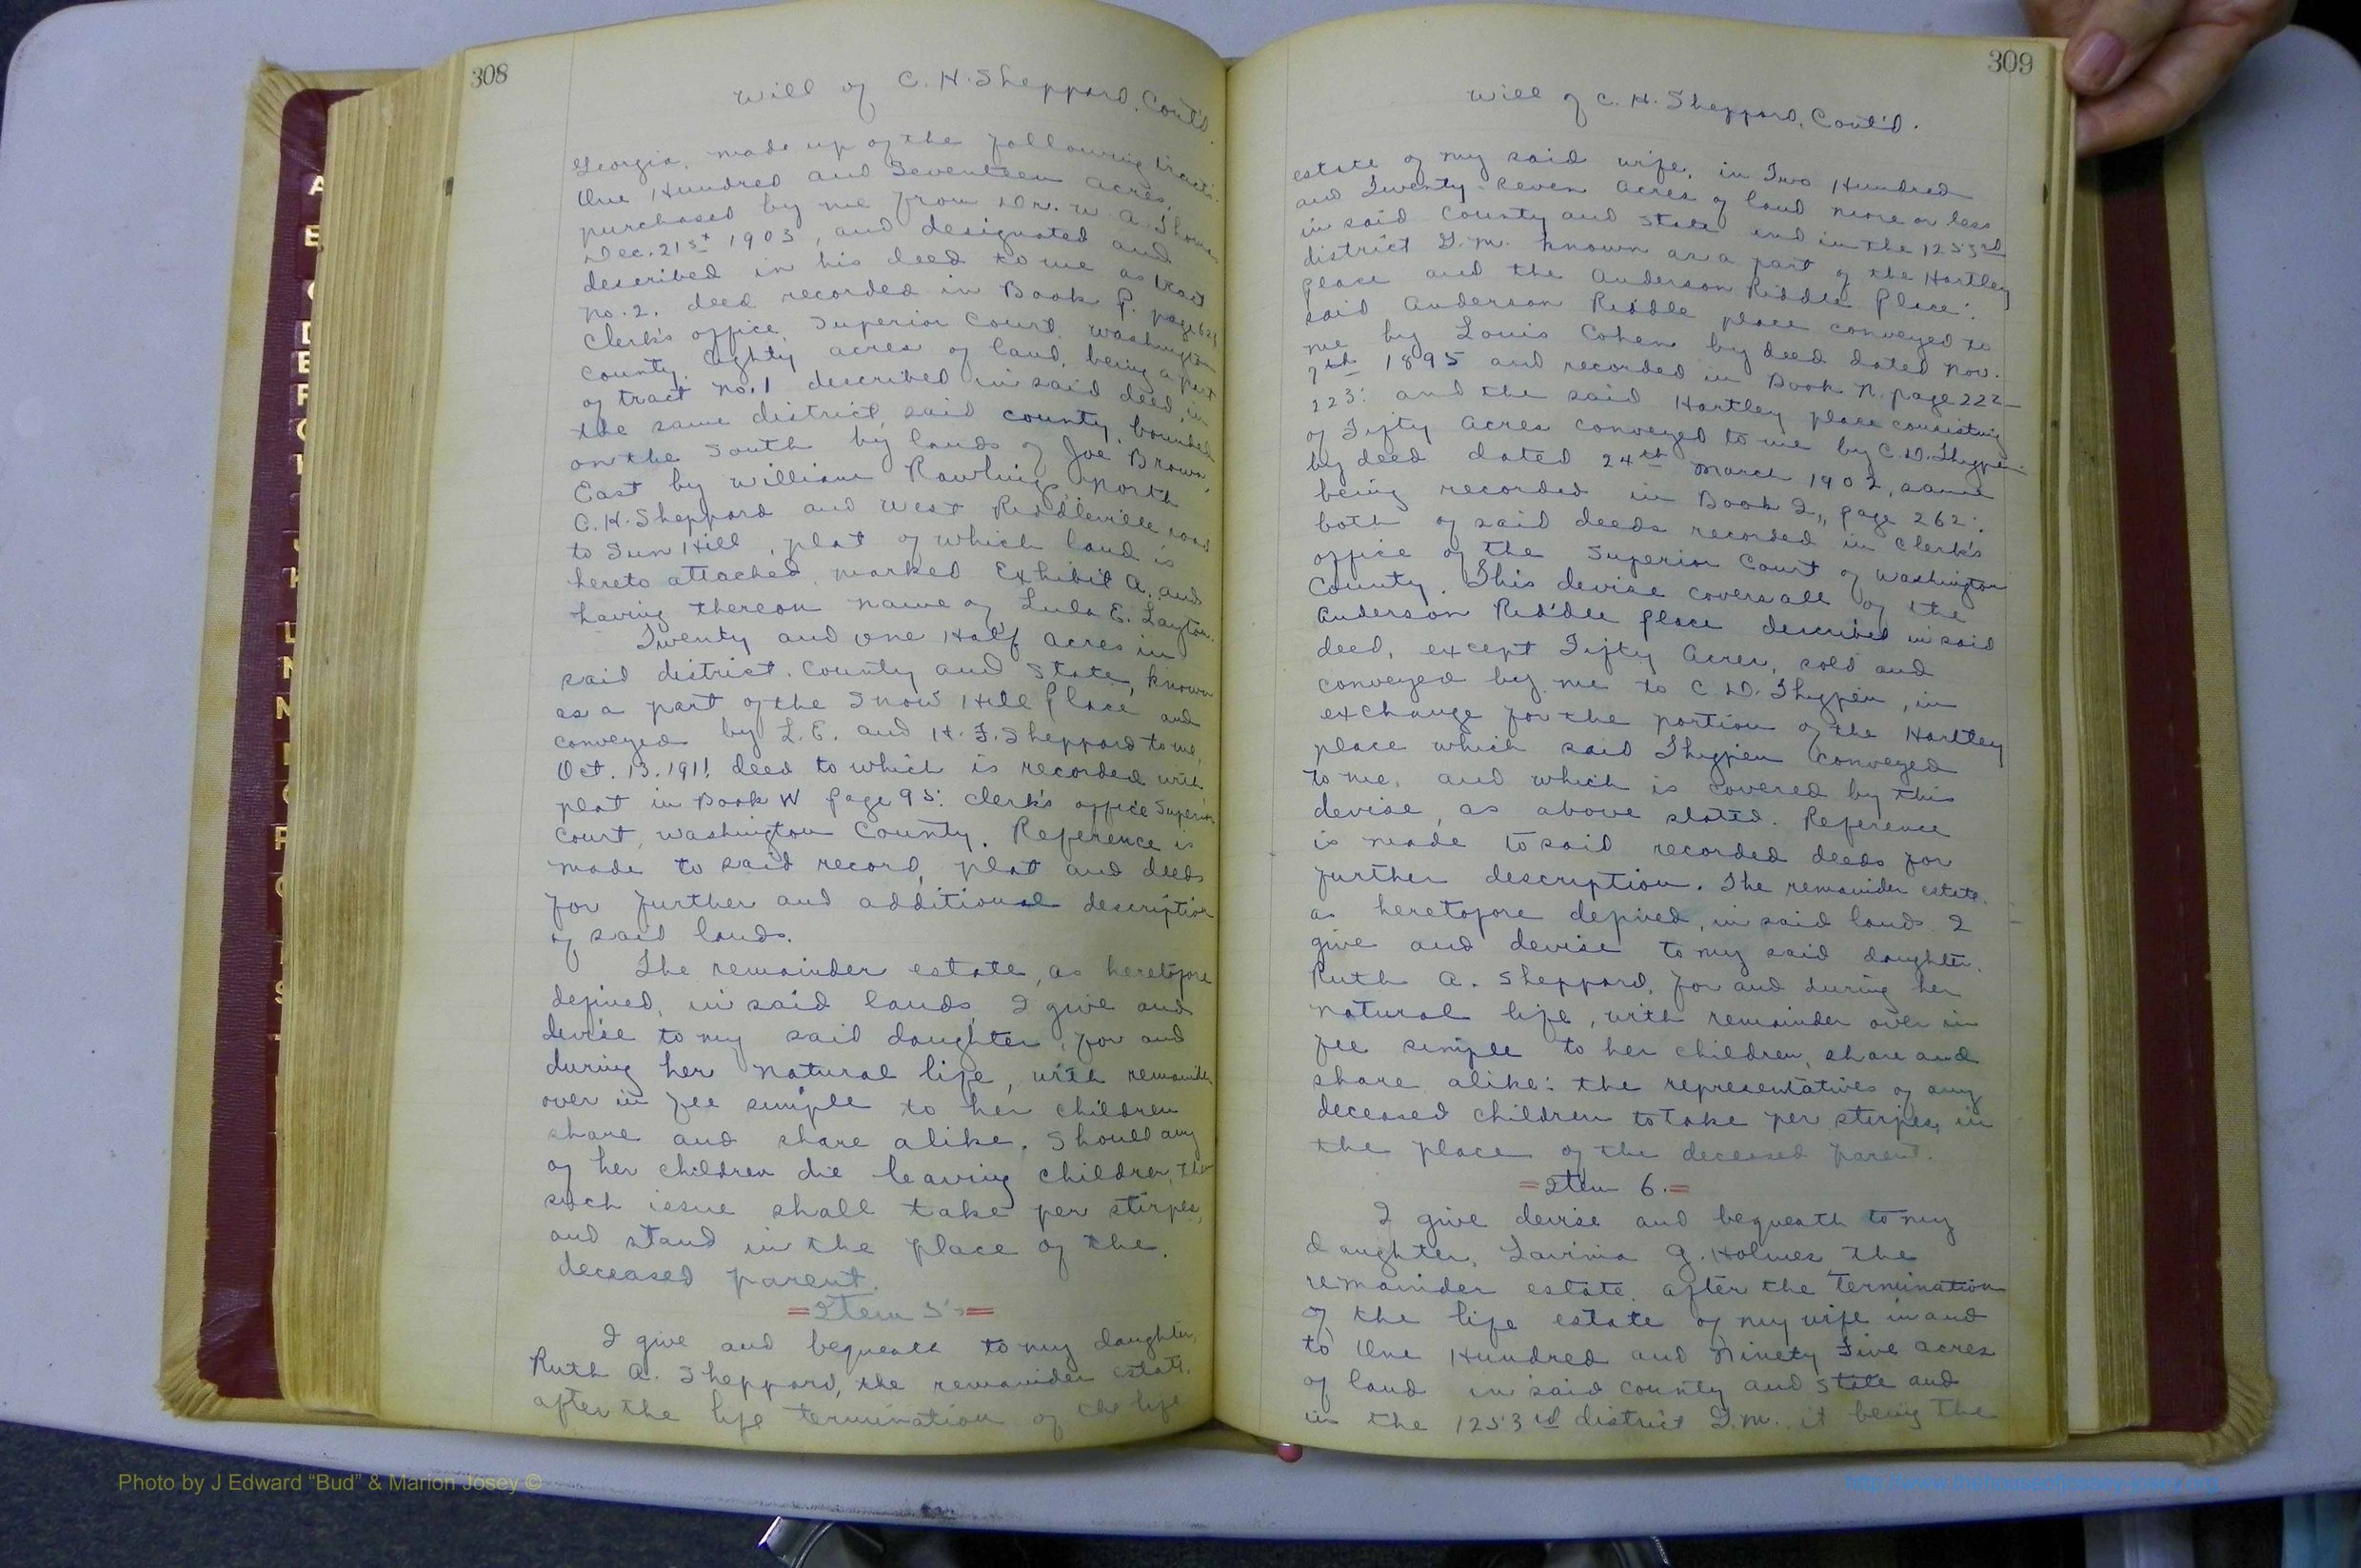 308
Will of C. H. Sheppard, Cont'd.
Georgia, made up of the following tracts.
One Hundred and Seventeen acres,
purchased by me from Dr. W. A.
Dec. 21st 1903, and designated and
described in his deed to me as tract
no. 2. deed recorded in Book P. page
Clerk's office Superior Court, Washington
County. Eighty acres of land, being a part
of tract no. 1 described in said deed, in
the same district, said county, bounded
on the South by lands of Joe Brown,
East by William Rawlings, North
C. H. Sheppard and West Riddleville road
to Sun Hill, plat of which land is
hereto attached, marked Exhibit A. and
having thereon name of Lula E. Layton.
Twenty and one Half acres in
said district, County and State, known
as a part of the Snow Hill Place and
conveyed by L. E. and H. F. Sheppard to me,
Oct. 13. 1911 deed to which is recorded with
plat in Book W page 95: Clerk's office Superior
Court, Washington County. Reference is
made to said record, plat and deeds
for further and additional description
of said lands.
The remainder estate, as heretofore
defined, in said lands, I give and
devise to my said daughter, for and
during her natural life, with remainder
over in fee simple to her children
share and share alike. Should any
of her children die leaving children, the
such issue shall take per stirpes,
and stand in the place of the
deceased parent.
=Item 5=
I give and bequeath to my daughter,
Ruth A. Sheppard, the remainder estate,
after the life termination of the life
309
Will of C. H. Sheppard, Cont'd.
estate of my said wife, in Two Hundred
and Twenty-Seven acres of land more or less
in said County and State and in the 1253rd
district G. M. known as a part of the Hartley
place and the Anderson Riddle Place:
said Anderson Riddle place conveyed to
me by Louis Cohen by deed dated Nov.
7th 1895 and recorded in Book N. page 222-
223: and the said Hartley place consisting
of Fifty acres conveyed to me by C. D. Thigpen
by deed dated 24th March 1902, same
being recorded in Book page 262:
both of said deeds recorded in Clerk's
office of the Superior Court of Washington
County. This devise covers all of the
Anderson Riddle place described in said
deed, except Fifty Acres, sold and
conveyed by me to C. D. Thigpen, in
exchange for the portion of the Hartley
place which said Thigpen conveyed
to me, and which is covered by this
devise, as above stated. Reference
is made to said recorded deeds for
further description. The remainder estate,
as heretofore defined, in said lands I
give and devise to my said daughter,
Ruth A. Sheppard, for and during her
natural life, with remainder over in
fee simple to her children, share and
share alike: the representatives of any
deceased children to take per stirpes, in
the place of the deceased parent.
=Item 6.=
I give devise and bequeath to my
daughter, Lavinia G. Holmes, the
remainder estate, after the termination
of the life estate of my wife in and
to One Hundred and Ninety Five acres
of land in said county and State and
in the 1253rd district G. M. it being the
Photo by J Edward “Bud” & Marion Josey ©